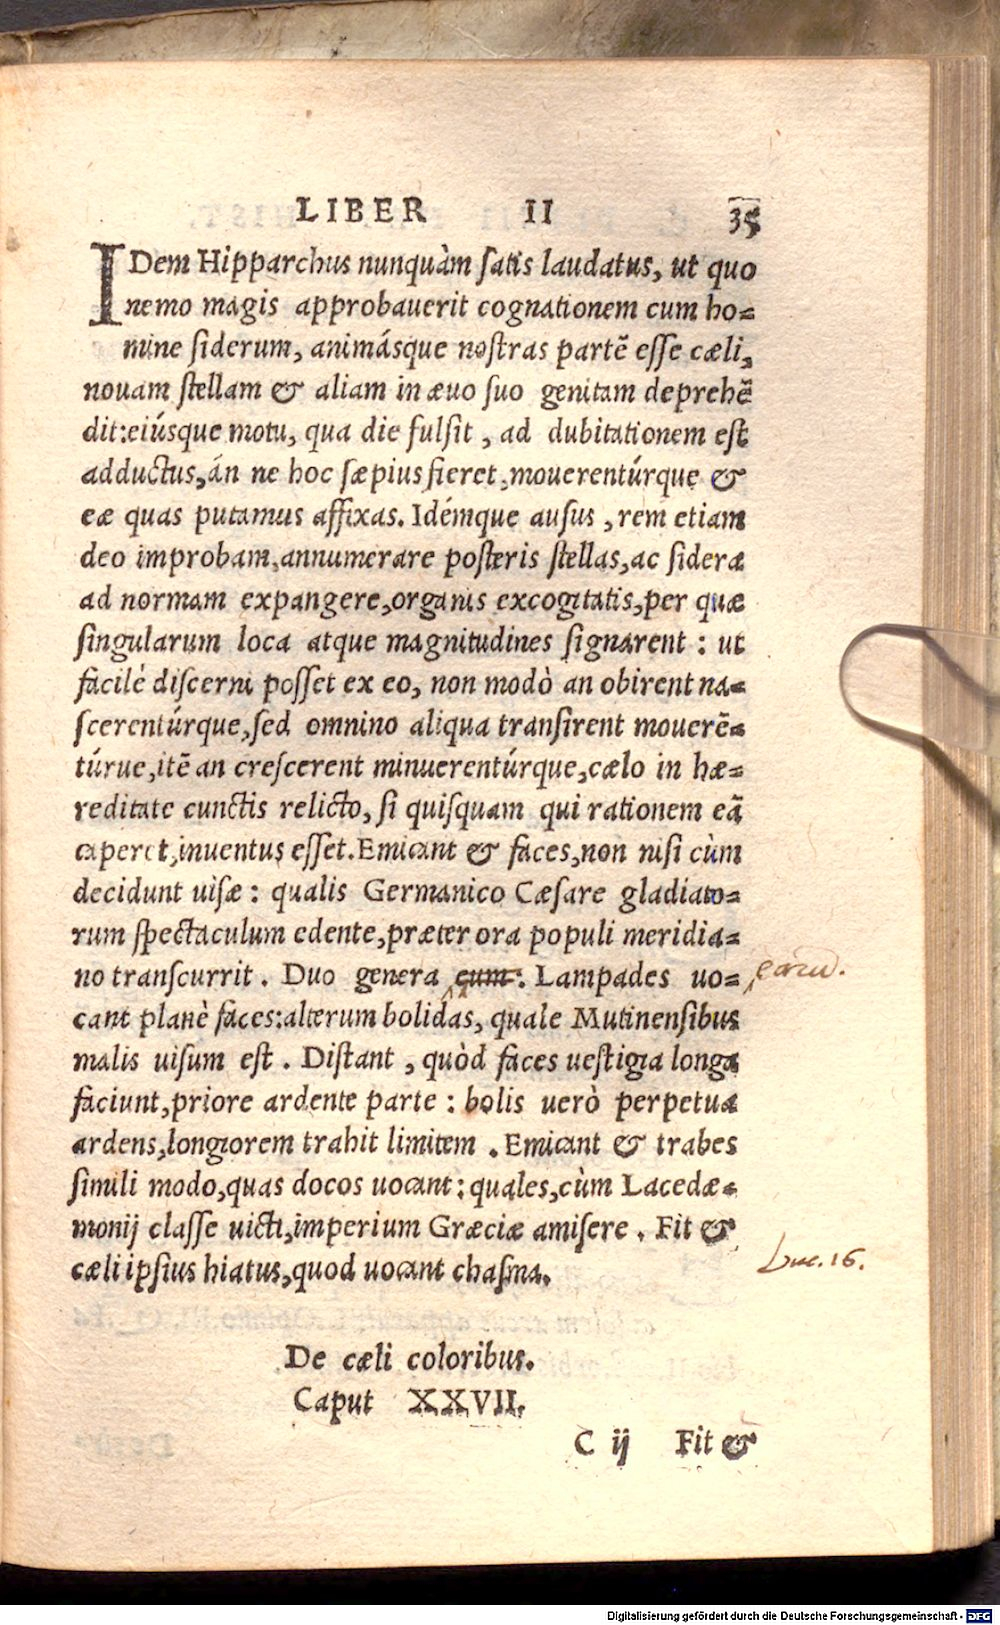 LIBER II 35
IDem Hipparchus nunquàm satis laudatus, ut quo
nemo magis approbauerit cognationem cum ho=
mine siderum, animásque nostras partẽ esse cæli,
nouam stellam & aliam in æuo suo genitam deprehẽ
dit: eiúsque motu, qua die fulsit, ad dubitationem est
adductus, án ne hoc sæpius fieret, mouerentúrque &
eæ quas putamus affixas. Idémque ausus, rem etiam
deo improbam, annumerare posteris stellas, ac sidera
ad normam expangere, organis excogitatis, per quæ
singularum loca atque magnitudines signarent: ut
facilè discerni posset ex eo, non modò an obirent na=
scerentúrque, sed omnino aliqua transirent mouerẽ=
túrue, itẽ an crescerent minuerentúrque, cælo in hæ=
reditate cunctis relicto, si quisquam qui rationem eã
caperet, inuentus esset. Emicant & faces, non nisi cùm
decidunt uisæ: qualis Germanico Cæsare gladiato=
rum spectaculum edente, præter ora populi meridia=
no transcurrit. Duo genera eum: Lampades uo= earũ.
cant planè faces: alterum bolidas, quale Mutinensibus
malis uisum est. Distant, quòd faces uestigia longa
faciunt, priore ardente parte: bolis uerò perpetua
ardens, longiorem trahit limitem. Emicant & trabes
simili modo, quas docos uocant: quales, cùm Lacedæ=
monij classe uicti, imperium Græciæ amisere. Fit &
cæli ipsius hiatus, quod uocant chasma. Luc. 16.
De cæli coloribus.
Caput XXVII.
C ij Fit &
Digitalisierung gefördert durch die Deutsche Forschungsgemeinschaft - DFG